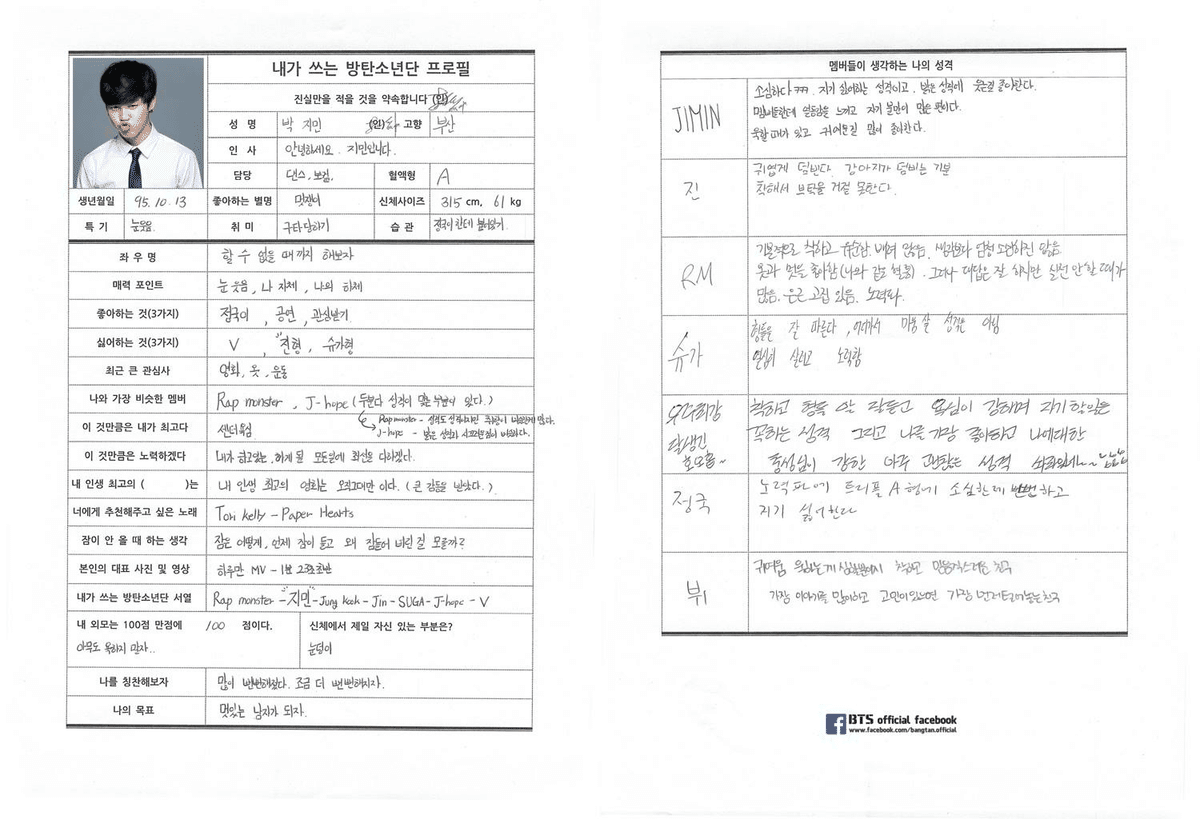 내가 쓰는 방탄소년단 프로필
진실만을 적을 것을 약속합니다 (인)
성 명 박 지민 (인) 고향 부산
인 사 안녕하세요. 지민입니다.
담당 댄스, 보컬, 혈액형 A
생년월일 95. 10. 13 좋아하는 별명 멋쟁이 신체사이즈 315 cm, 61 kg
특 기 눈웃음 취 미 구타당하기 습 관 정국이한테
좌 우 명 할 수 없을 때까지 해보자
매력 포인트 눈웃음, 나 자체, 나의 하체
좋아하는 것(3가지) 정국이, 공연, 관심받기
싫어하는 것(3가지) V, "진형", 슈가형
최근 큰 관심사 영화, 옷, 운동
나와 가장 비슷한 멤버 Rap monster, J-hope (두분다 성격이 맞는 부분이 있다.)
이 것만큼은 내가 최고다 센터욕심
Rap monster - 성격도 성격이지만
J-hope - 밝은 성격과 사고방식이 비슷하다.
이 것만큼은 노력하겠다 내가 하고있는, 하게 될 모든일에 최선을 다하겠다.
내 인생 최고의 ( )는 내 인생 최고의 영화는 이다. (큰 감동을 받았다.)
너에게 추천해주고 싶은 노래 Tori kelly - Paper Hearts
잠이 안 올 때 하는 생각 잠은 어떻게, 언제 잠이 들고 왜 잠들어 버린걸 모를까?
본인의 대표 사진 및 영상 하루만 MV - 1분
내가 쓰는 방탄소년단 서열 Rap monster - "지민" - Jung kook - Jin - SUGA - J-hope - V
내 외모는 100점 만점에 100 점이다.
아무도 욕하지 말자..
신체에서 제일 자신 있는 부분은?
눈덩이
나를 칭찬해보자 많이 뻔뻔해졌다. 조금 더 뻔뻔해지자.
나의 목표 멋있는 남자가 되자.
멤버들이 생각하는 나의 성격
JIMIN
소심하다 ㅋㅋ. 지기 싫어하는 성격이고, 밝은 성격에 웃는걸 좋아한다.
열등감을 느끼고 자기 불만이 많은 편이다.
욱할때가 있고 귀여운걸 많이 좋아한다.
진
귀엽게 덤빈다 강아지가 덤비는 기분
착해서 부탁을 거절 못한다.
RM
기본적으로 착하고 유순함. 배려 많음. 생각보다 엄청 소심하진 않음
옷과 멋을 좋아함 (나와 같은 취향). 그러나 대답은 잘 하지만 실천 안할 때가
많음. 은근 고집 있음. 노력파.
슈가
형들을 잘 따른다, 어디가서 미움 살 성격은 아님
열심히 살려고 노력함
착하고 형들 말 잘듣고 욕심이 강하며 자기 할일은
꼭하는 성격 그리고 나를 가장 좋아하고 나에대한
충성심이 강한 아주 괜찮은 성격
정국
노력파에 트리플 A형에 소심한데 뻔뻔하고
지기 싫어한다
뷔
귀여움
가장 이야기를 많이하고 고민이있으면 가장 먼저 털어놓는친구
BTS official facebook
www.facebook.com/bangtan.official